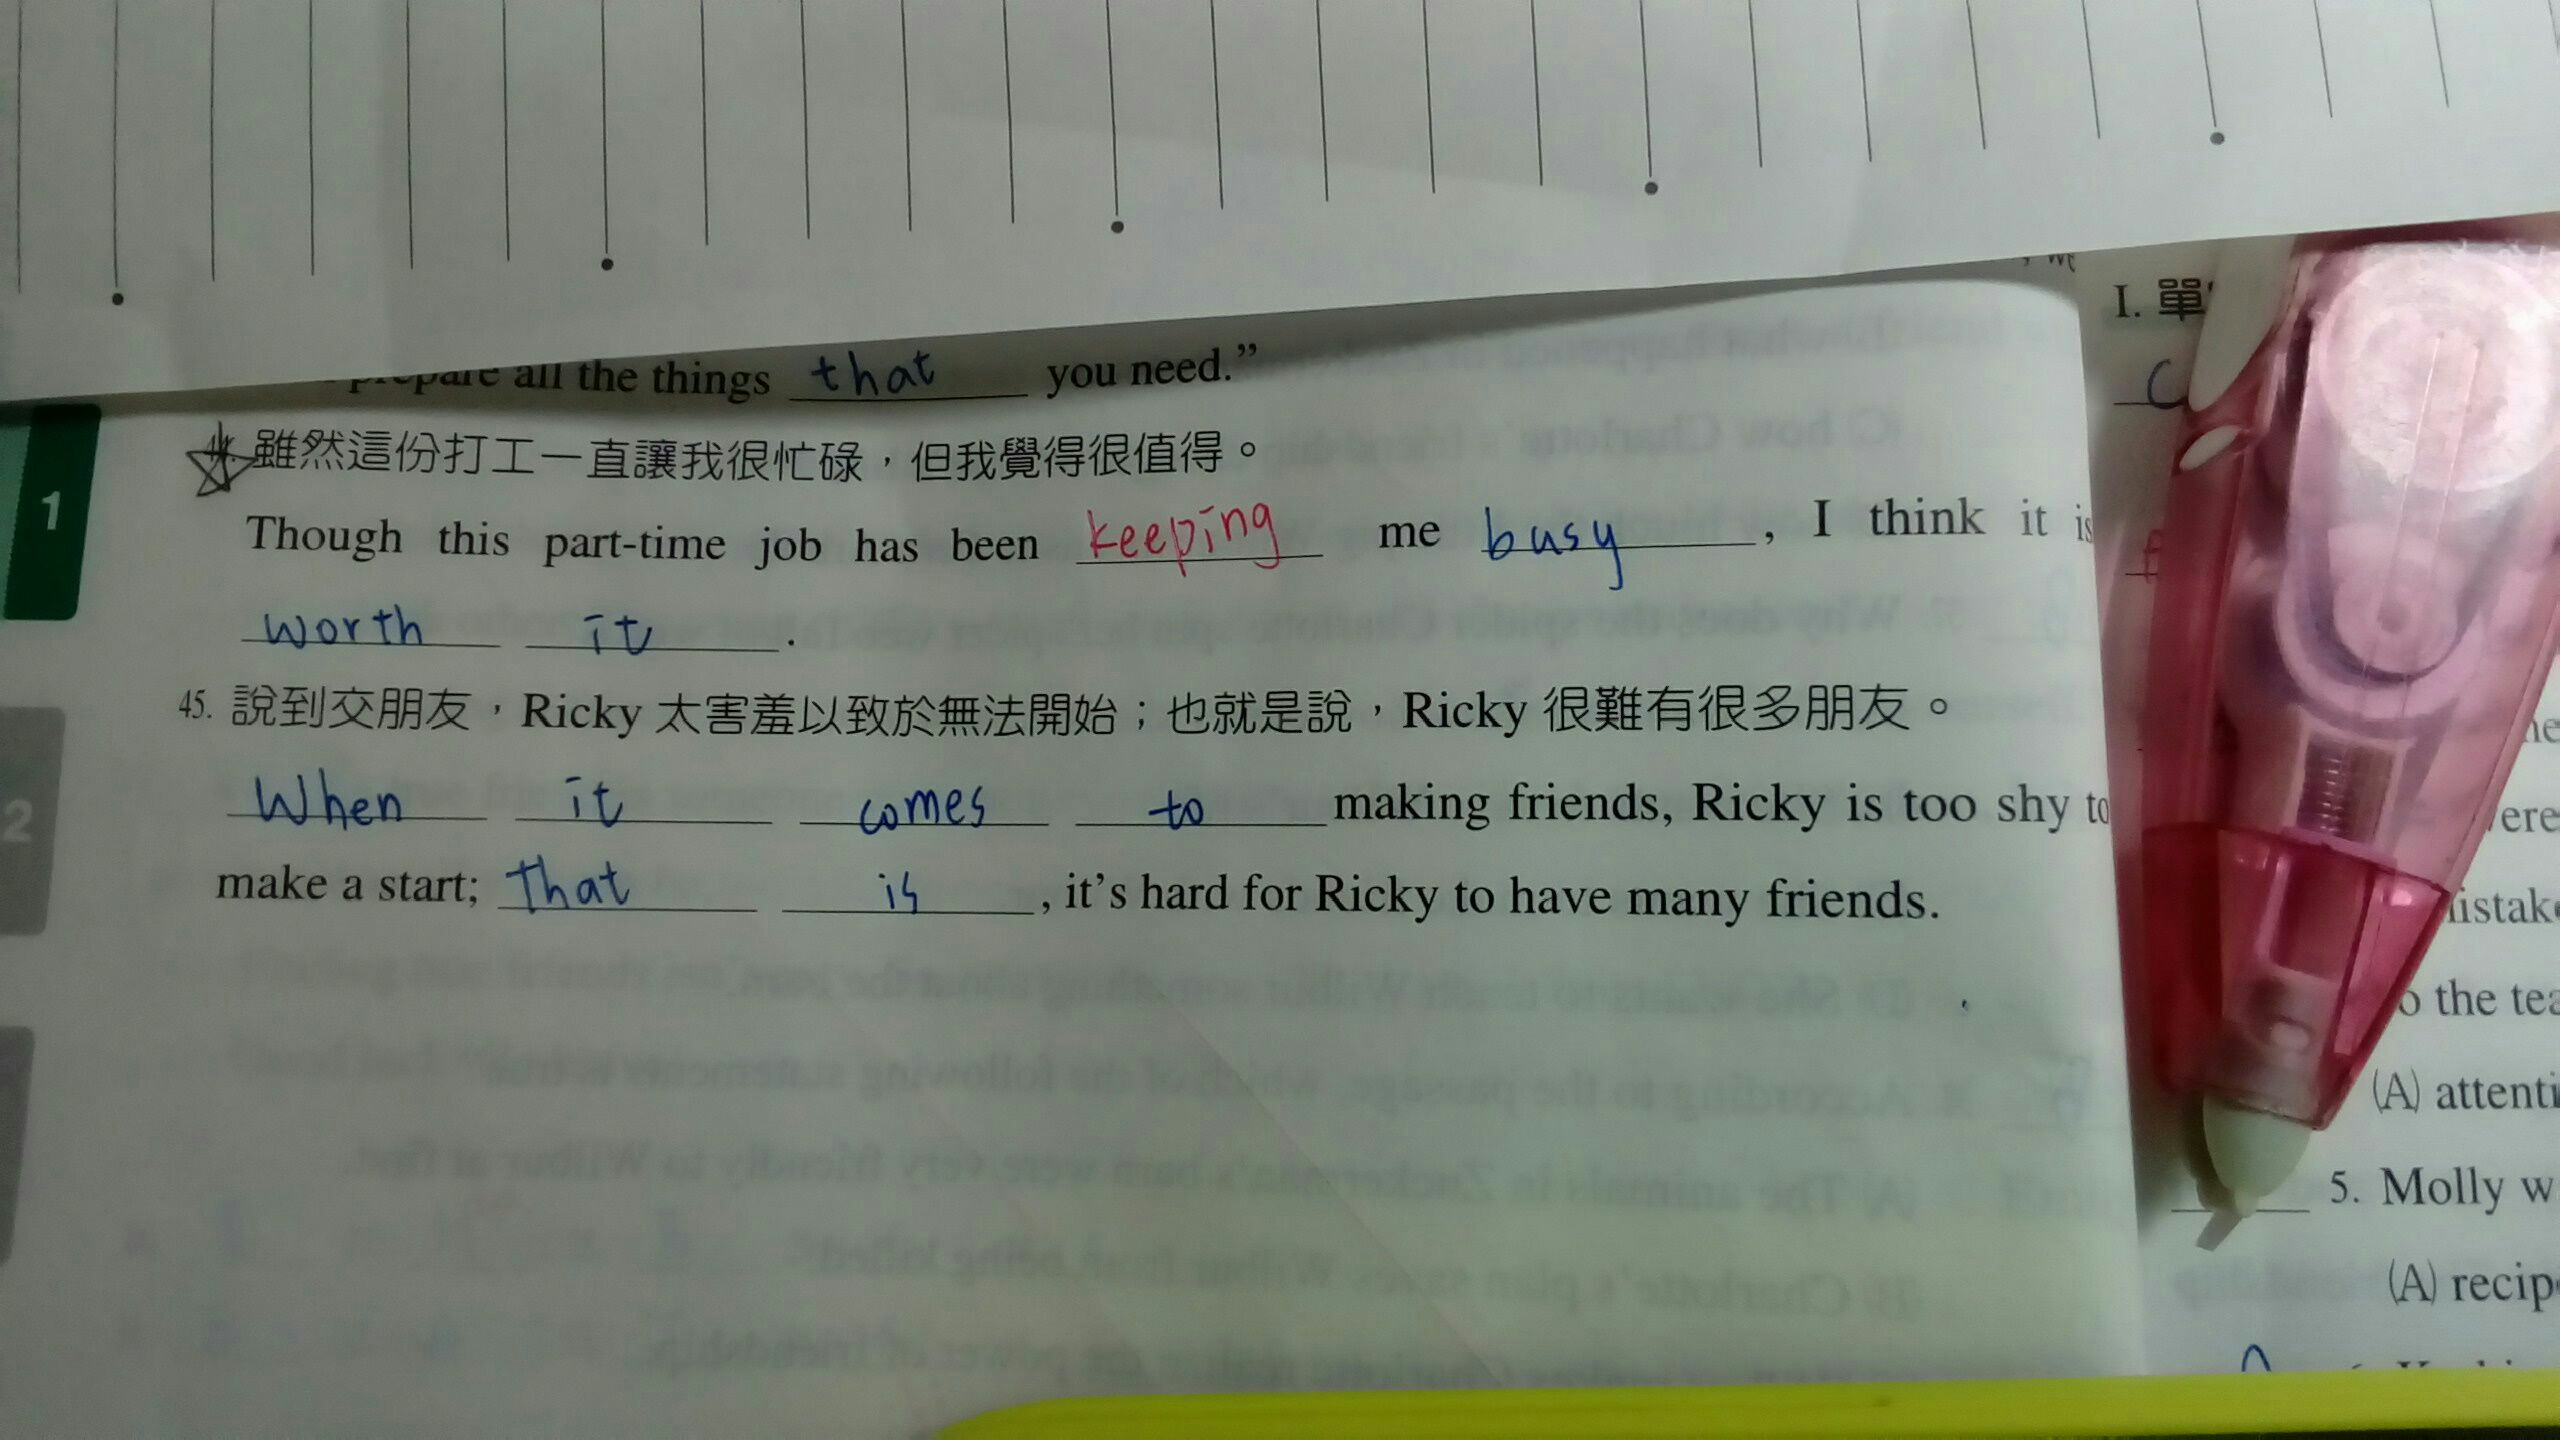 prepare all the things that you need.”
雖然這份打工一直讓我很忙碌，但我覺得很值得。
Though this part-time job has been keeping me busy, I think it is
worth it.
45. 說到交朋友，Ricky 太害羞以致於無法開始；也就是說，Ricky 很難有很多朋友。
When it comes to making friends, Ricky is too shy to
make a start; that is, it’s hard for Ricky to have many friends.
1
2
I. 單
C
the tea
(A) attenti
5. Molly w
(A) recip